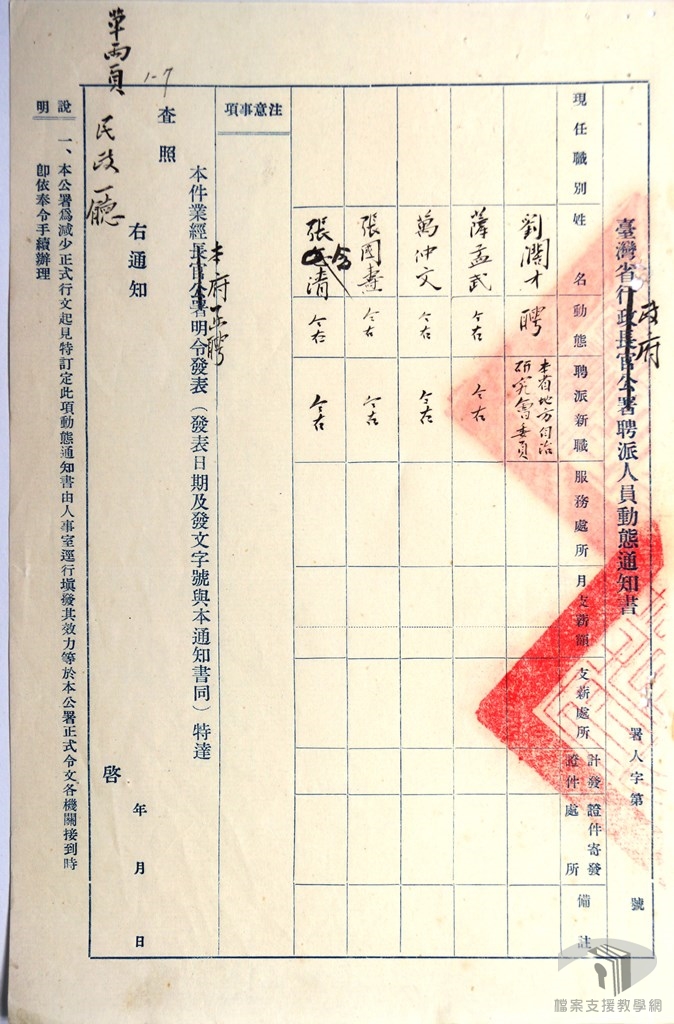 臺灣省行政長官公署聘派人員動態通知書
政府
署人字第 號
現任職別 姓名 動態 聘派新職 服務處所 月支薪額 支薪處所 計發證件 證件寄發處所 備註
劉濶才 聘 本省地方自治研究會委員
薩孟武 仝右 仝右
萬仲文 仝右 仝右
張國書 仝右 仝右
張清 仝右 仝右
注意事項
本件業經長官公署明令發表(發表日期及發文字號與本通知書同)特達
本府正聘
查照
右通知
民政廳
啓 年 月 日
單兩頁
1-7
說明
一、本公署爲減少正式行文起見特訂定此項動態通知書由人事室逕行塡發其效力等於本公署正式令文各機關接到時
卽依奉令手續辦理
檔案支援教學網